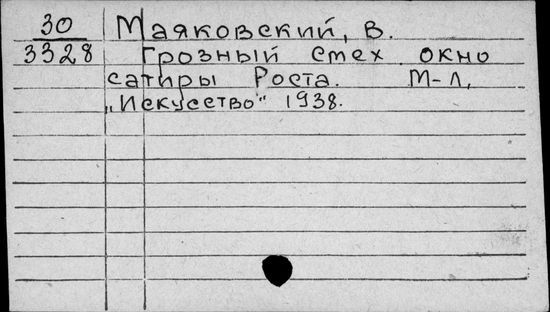 30 Маяковский, В.
3328 Грозный смех окно
сатиры Роста. М-Л,
„Искусство" 1938.